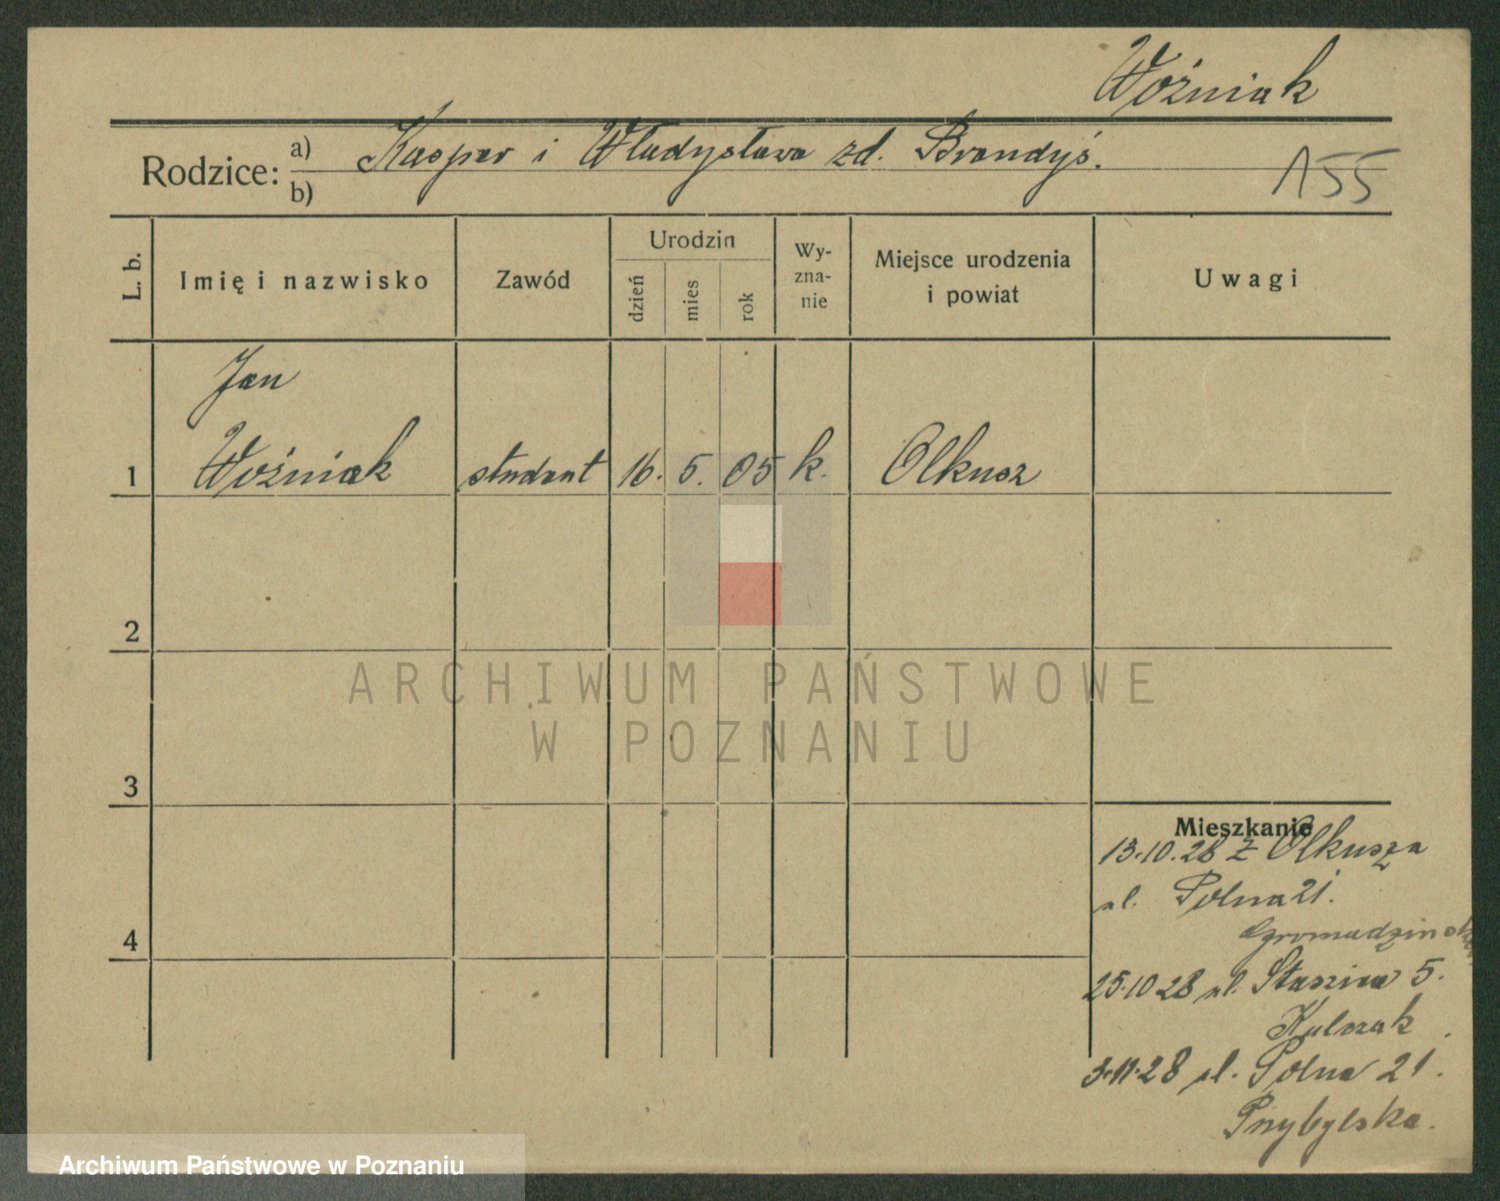 Woźniak
Rodzice: a) Kasper i Władysława zd. Brandyś.
b)
155
L. b.
Imię i nazwisko
Zawód
Urodzin
dzień
mies
rok
Wy-
zna-
nie
Miejsce urodzenia
i powiat
Uwagi
Jan
1 Woźniak student 16. 5. 05 k. Olkusz
2
ARCHIWUM PAŃSTWOWE
W POZNANIU
3
Mieszkanie
13.10.28 z Olkusza
ul. Polna 21.
4
25.10 28 ul. Staszica 5.
Kulczak
3.11.28 ul. Polna 21.
Przybylska.
Archiwum Państwowe w Poznaniu